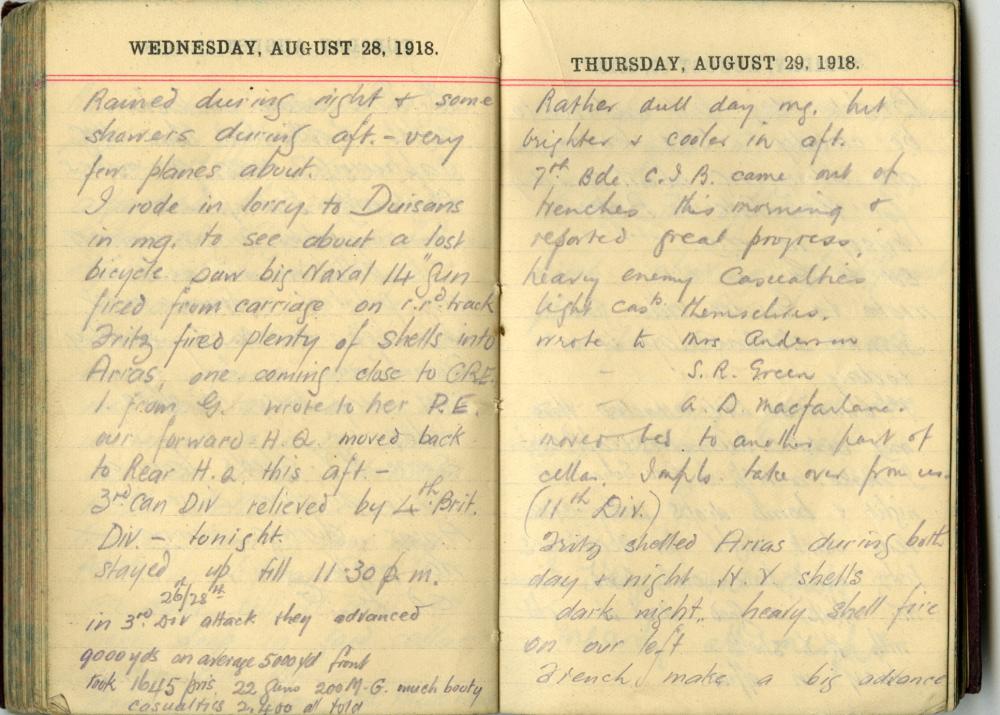 WEDNESDAY, AUGUST 28, 1918.
Rained during night & some
showers during aft. - very
few planes about.
I rode in lorry to Duisans
in mg. to see about a lost
bicycle saw big Naval 14" Gun
fired from carriage on r.rd. track
Fritz fired plenty of shells into
Arras, one coming close to CRE.
1 from G. wrote to her P.E.
our forward H.Q. moved back
to Rear H.Q. this aft -
3rd Can Div relieved by 4th Brit.
Div. - tonight.
stayed up till 11.30 p.m.
26/28th
in 3rd Div attack they advanced
9000 yds on average 5000 yd front
took 1645 pris. 22 Guns 200 M-G. much booty
casualties 2,400 all told
THURSDAY, AUGUST 29, 1918.
Rather dull day mg. but
brighter & cooler in aft.
7th Bde. C.I.B. came out of
trenches this morning &
reported great progress,
heavy enemy Casualties
light cas. themselves.
wrote to Mrs Anderson
S. R. Green
A. D. Macfarlane.
moved bed to another part of
cellar. Impls. take over from us.
(11th Div.)
Fritz shelled Arras during both
day & night H.V. shells
dark night. heavy shell fire
on our left
French make a big advance